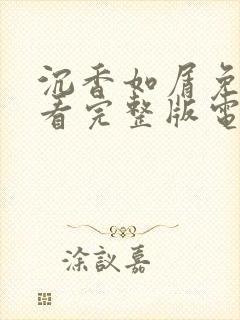 沉香如屑免
看完整版電
涂議嘉